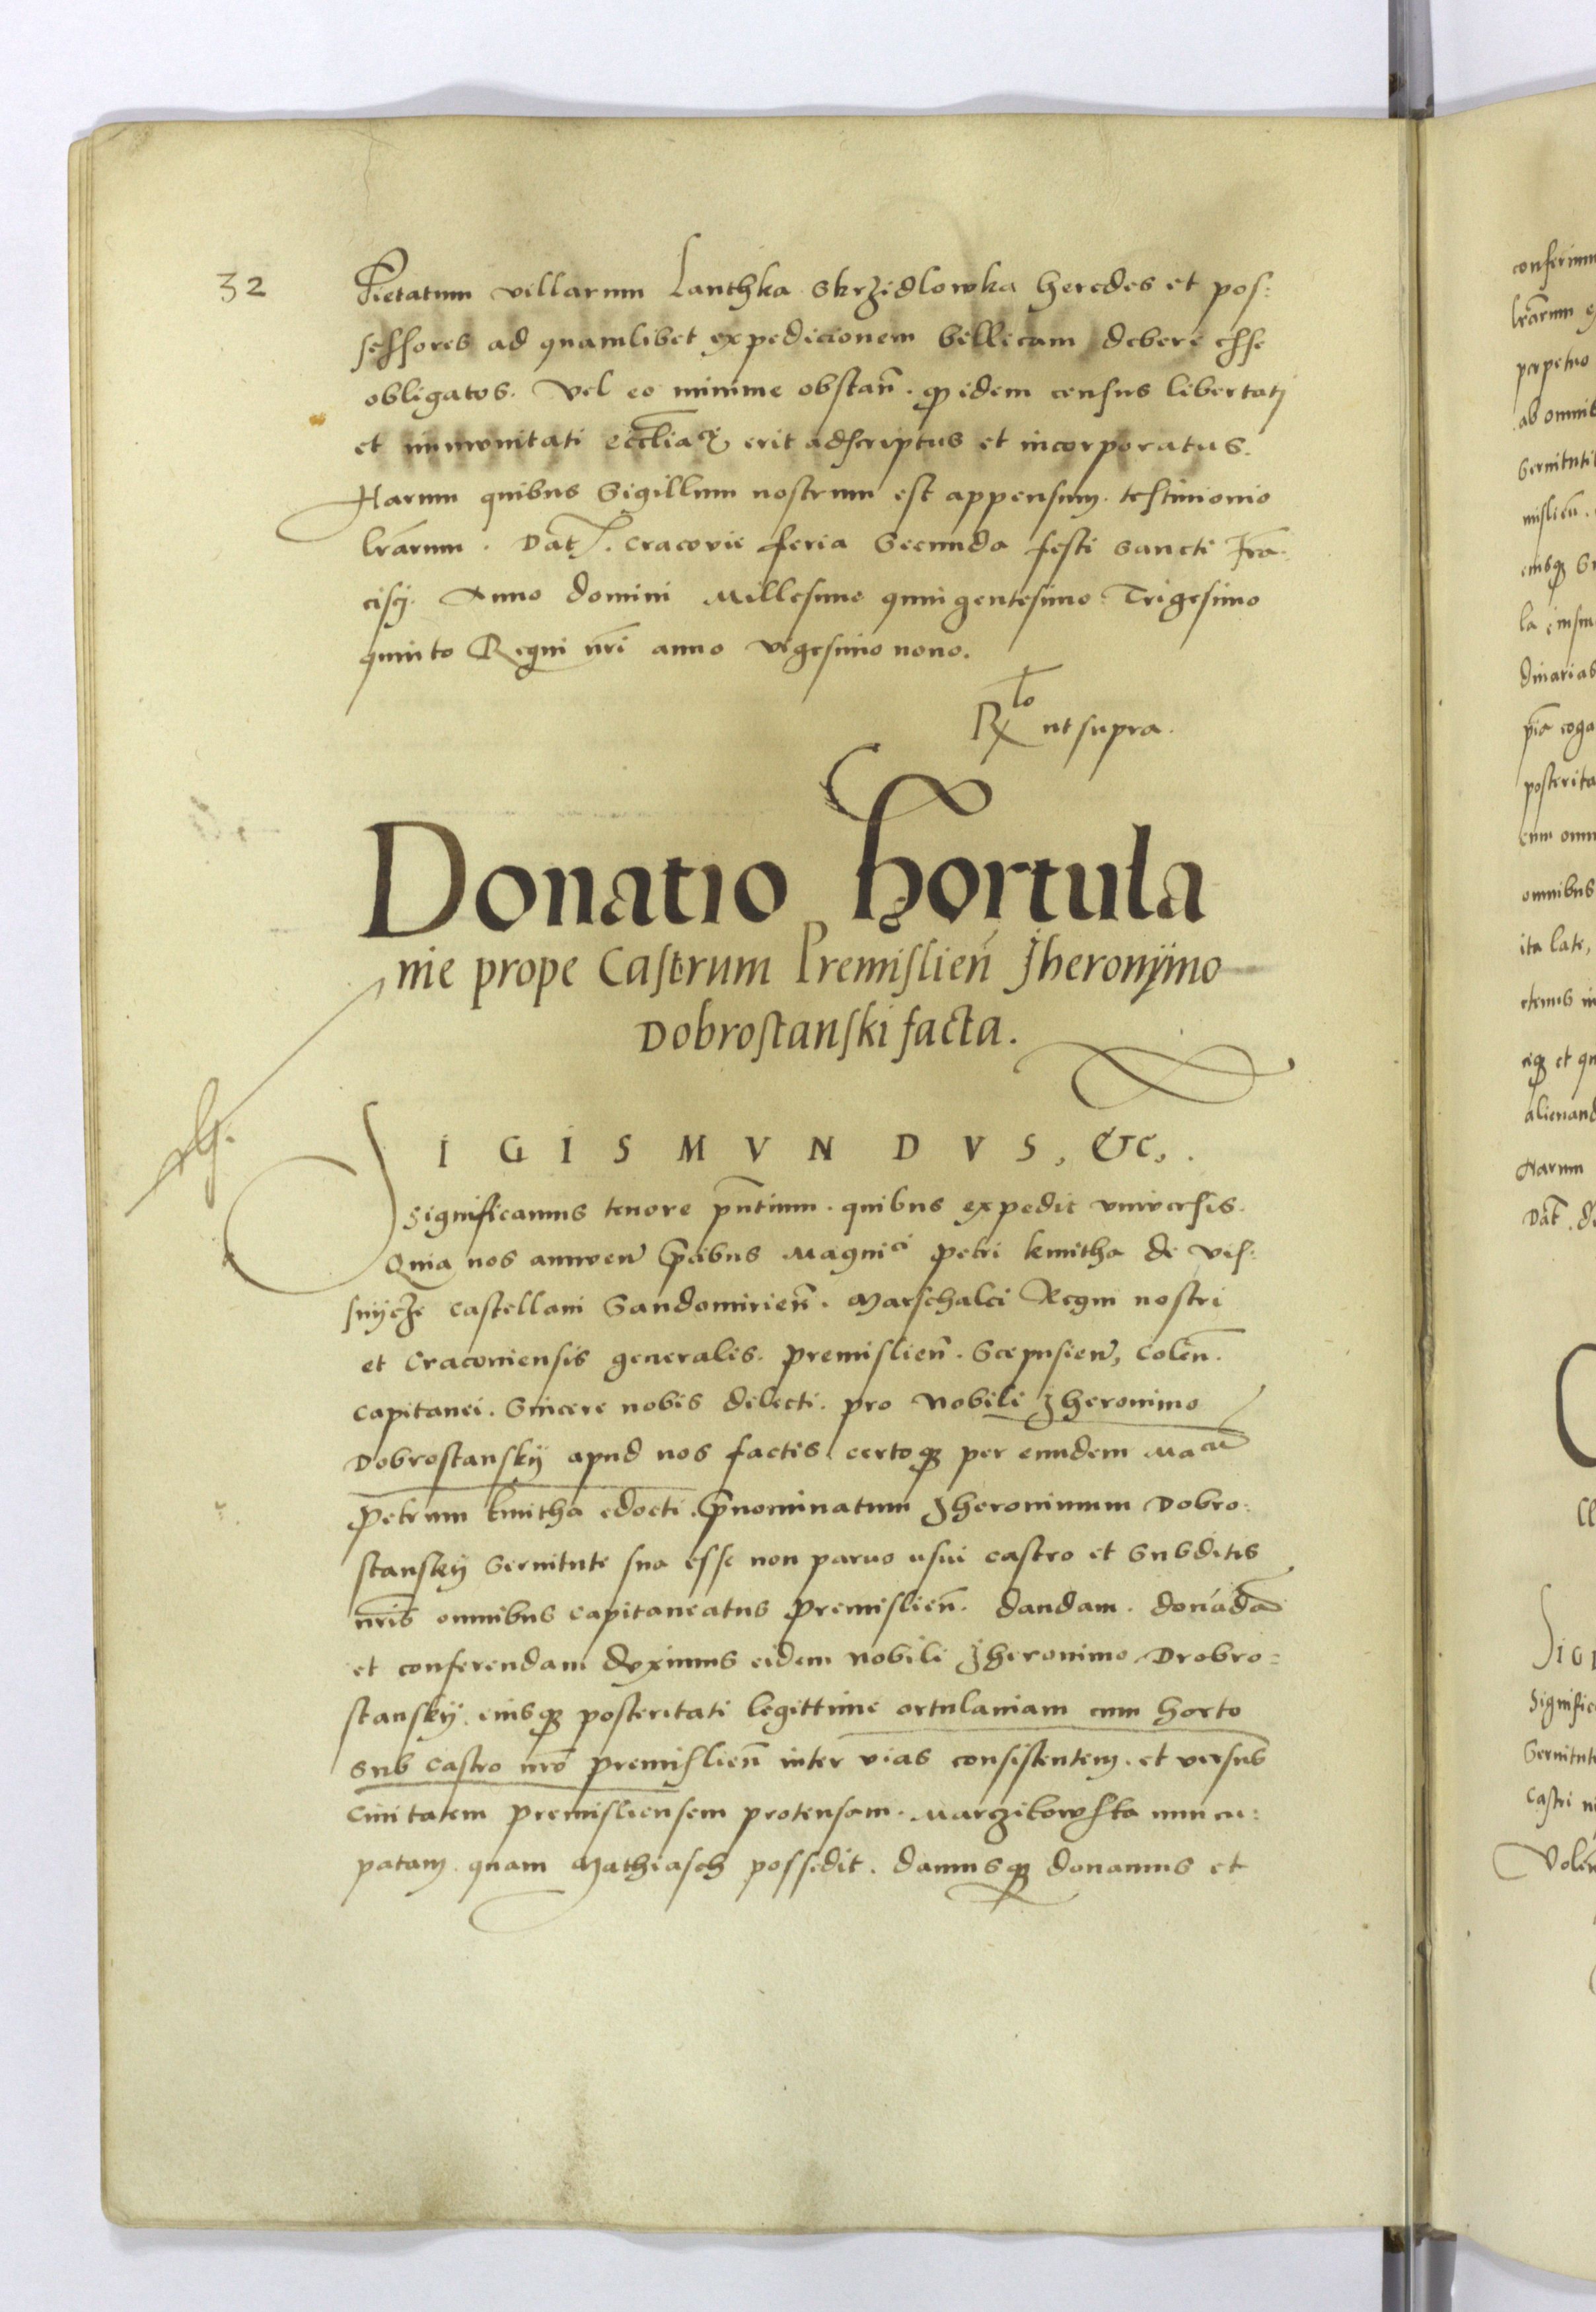 32
Pietatum villarum Lanthka Skrzidlowka heredes et pos:
sessores ad quamlibet expedicionem bellicam debere esse
obligatos. Vel eo minime obstañ. ꝙ idem census libertati
et immunitati eccliaꝝ erit adscriptus et incorporatus.
Harum quibus Sigillum nostrum est appensum. testimonio
lr̃arum. Dat̃. Cracovie feria Secunda festi Sancti Frã
cisci. Anno domini Millesimo quingentesimo Trigesimo
quinto Regni nr̃i anno vigesimo nono.
Rlo ut supra.
Donatio hortula
nie prope Castrum Premislieñ Jheronÿmo
Dobrostanski facta.
SIGISMVNDVS, &c,.
Significamus tenore pñtium. quibus expedit vniversis.
Quia nos annuen̄ p̄cibus Magnici Petri kmitha de vis:
snÿcze castellani Sandomirieñ. Marschalci Regni nostri
et Cracouiensis generalis. premislieñ. Scepusien̄, Coleñ.
capitanei. Sincere nobis dilecti. pro Nobili Jheronimo
Dobrostanskÿ apud nos factis. certoqꝫ per eundem Macũ
Petrum kmitha edocti. p̄nominatum Jheronimum Dobro:
stanskÿ Seruitute sua esse non paruo usui castro et Subditis
nr̃is omnibus capitaneatus Premislieñ. dandam. donãdã
et conferendam duximus eidem nobili Jheronimo Drobro=
stanskÿ. eiusqꝫ posteritati legittime ortulaniam cum horto
sub castro nr̃o premislieñ inter vias consistentem. et versus
Ciuitatem premisliensem protensam. Marzikowska nuncu:
patam. quam Mathiasch possedit. damusqꝫ donamus et